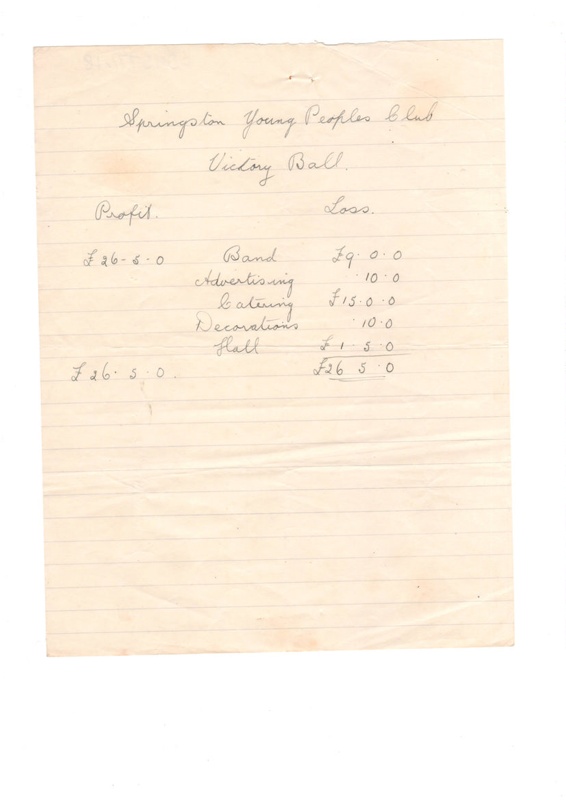 Springston Young Peoples Club
Victory Ball.
Profit. Loss.
£ 26-5-0 Band £9.0.0
Advertising 10.0
Catering £15.0.0
Decorations 10.0
Hall £1.5.0
£26.5.0. £26 5.0